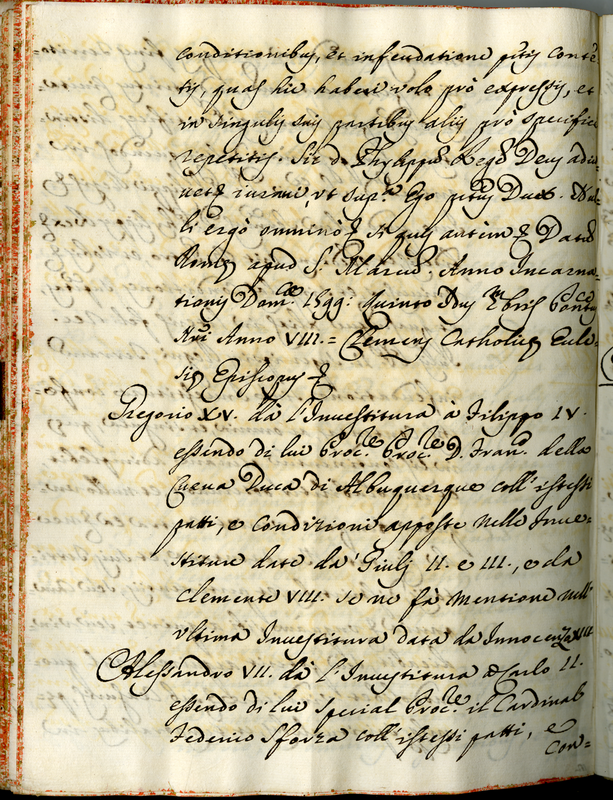 conditionibus, et infeudatione pntis conte-
tis, quas hic haberi volo pro expressis, et
in singulis suis partibus aliis pro specifice
repetitis. Sic d. Phylippus Rege Deus adiu-
uet iurani, vt sup.ª Ego pntus Dux. Nul-
li ergo omnino si quis autem Datis
Rome apud S. Marcum. Anno Incarna-
tionis Dom.cæ 1599: Quinto Idus Pontus
Nri Anno VIII.= Clemens Catholice Eccle-
sie Episcopus
Gregorio XV. dà l'Inuestitura à Filippo IV.
essendo di lui Proc.re Proc.re D. Fran.co della
Cueua Duca di Albuquerque coll'istessi
patti, e Condizioni apposte nelle Inue-
stiture date da Giulj II. e III., e da
Clemente VIII. se ne fà mentione nell'
vltima Inuestitura data da Innocenzo XII
Alessandro VII. dà l'Inuestitura à Carlo II.
essendo di lui special Proc.re il Cardinal
Federico Sforza coll'istessi patti, e
Con=